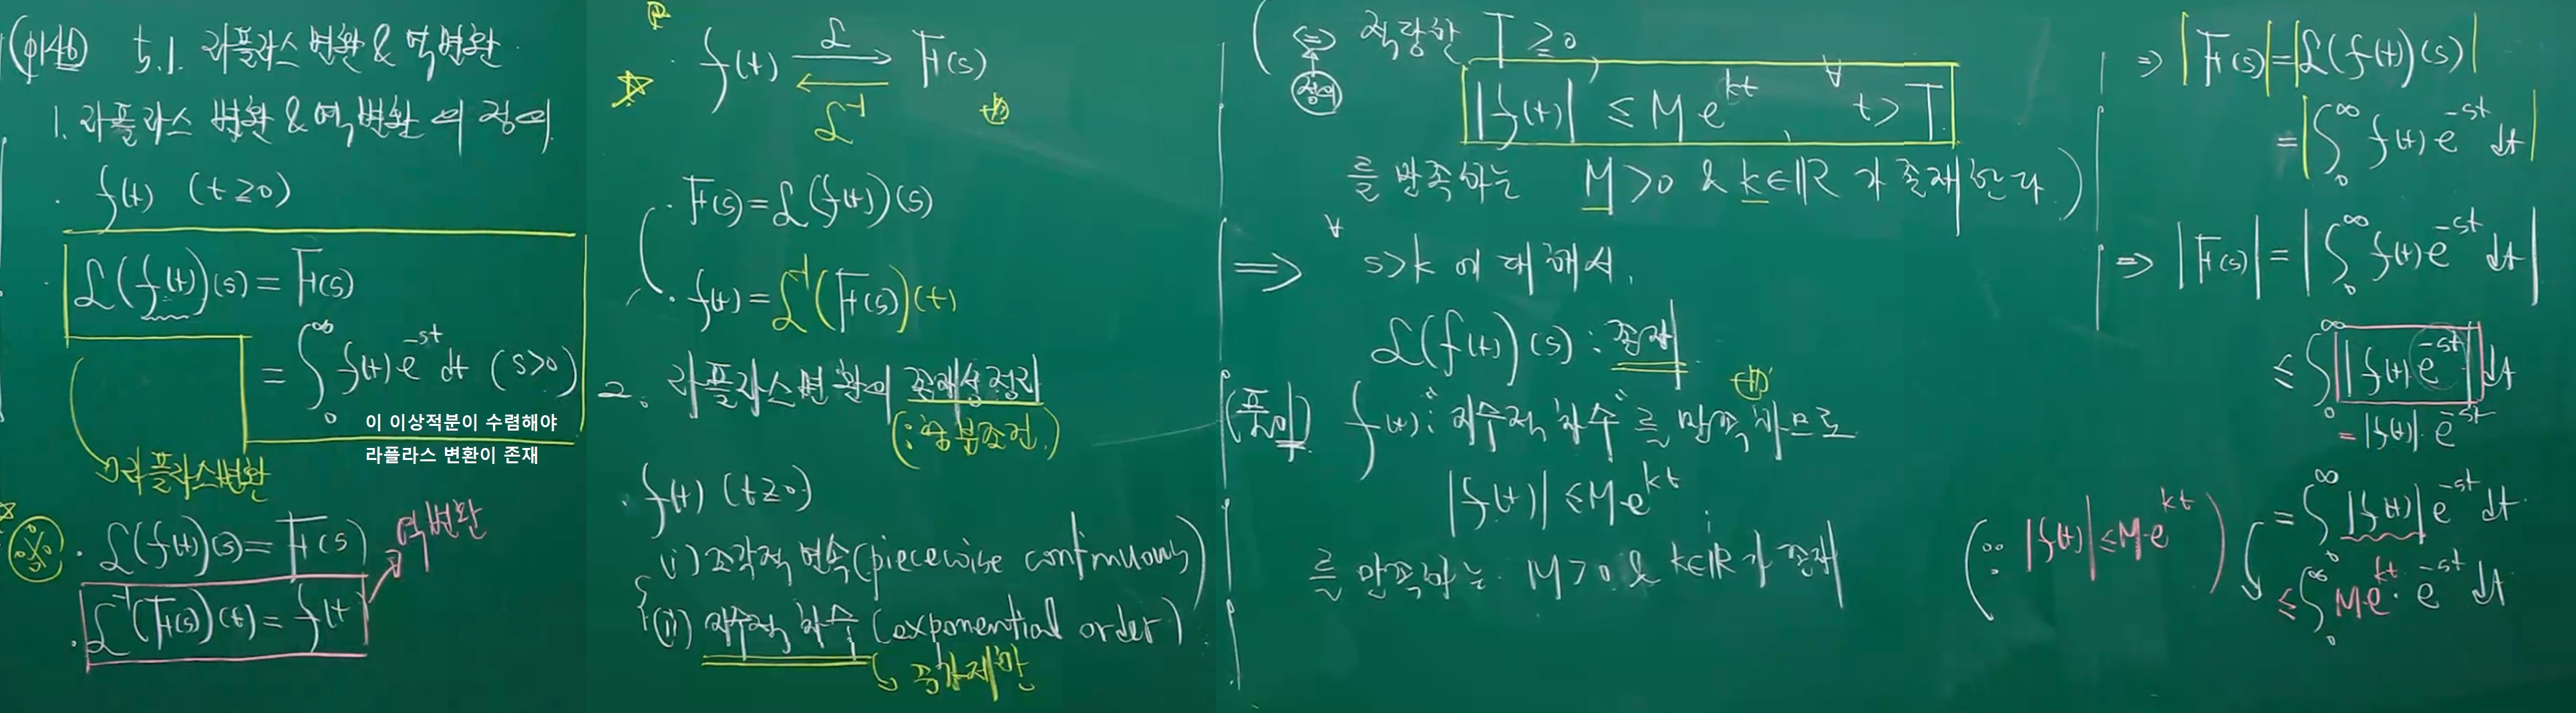 (p146) 5.1. 라플라스 변환 & 역변환
1. 라플라스 변환 & 역변환의 정의.
· f(t) (t≥0)
· ℒ(f(t))(s) = F(s)
= ∫₀^∞ f(t) e^{-st} dt (s>0)
이 이상적분이 수렴해야
라플라스 변환이 존재
→라플라스변환
· ℒ(f(t))(s) = F(s)
역변환
· ℒ⁻¹(F(s))(t) = f(t)
· f(t) ⇄ F(s)
ℒ
ℒ⁻¹
· F(s) = ℒ(f(t))(s)
· f(t) = ℒ⁻¹(F(s))(t)
2. 라플라스변환의 존재성정리
(:충분조건.)
· f(t) (t≥0)
(i) 조각적 연속(piecewise continuous)
(ii) 지수적 차수 (exponential order)
↳ 증가제한
(⇔ 적당한 T≥0,
정의
|f(t)| ≤ M e^{kt}, ∀t>T
를 만족하는 M>0 & k∈ℝ가 존재한다.)
⟹ ∀s>k에 대해서,
ℒ(f(t))(s) : 존재
(풀이) f(t): "지수적 차수"를 만족하므로
|f(t)| ≤ M e^{kt}
를 만족하는 M>0 & k∈ℝ가 존재
⇒ |F(s)| = |ℒ(f(t))(s)|
= |∫₀^∞ f(t) e^{-st} dt|
⇒ |F(s)| = |∫₀^∞ f(t) e^{-st} dt|
≤ ∫₀^∞ |f(t) e^{-st}| dt
= |f(t)|·e^{-st}
= ∫₀^∞ |f(t)| e^{-st} dt
(∵ |f(t)| ≤ M·e^{kt})
≤ ∫₀^∞ M·e^{kt}·e^{-st} dt